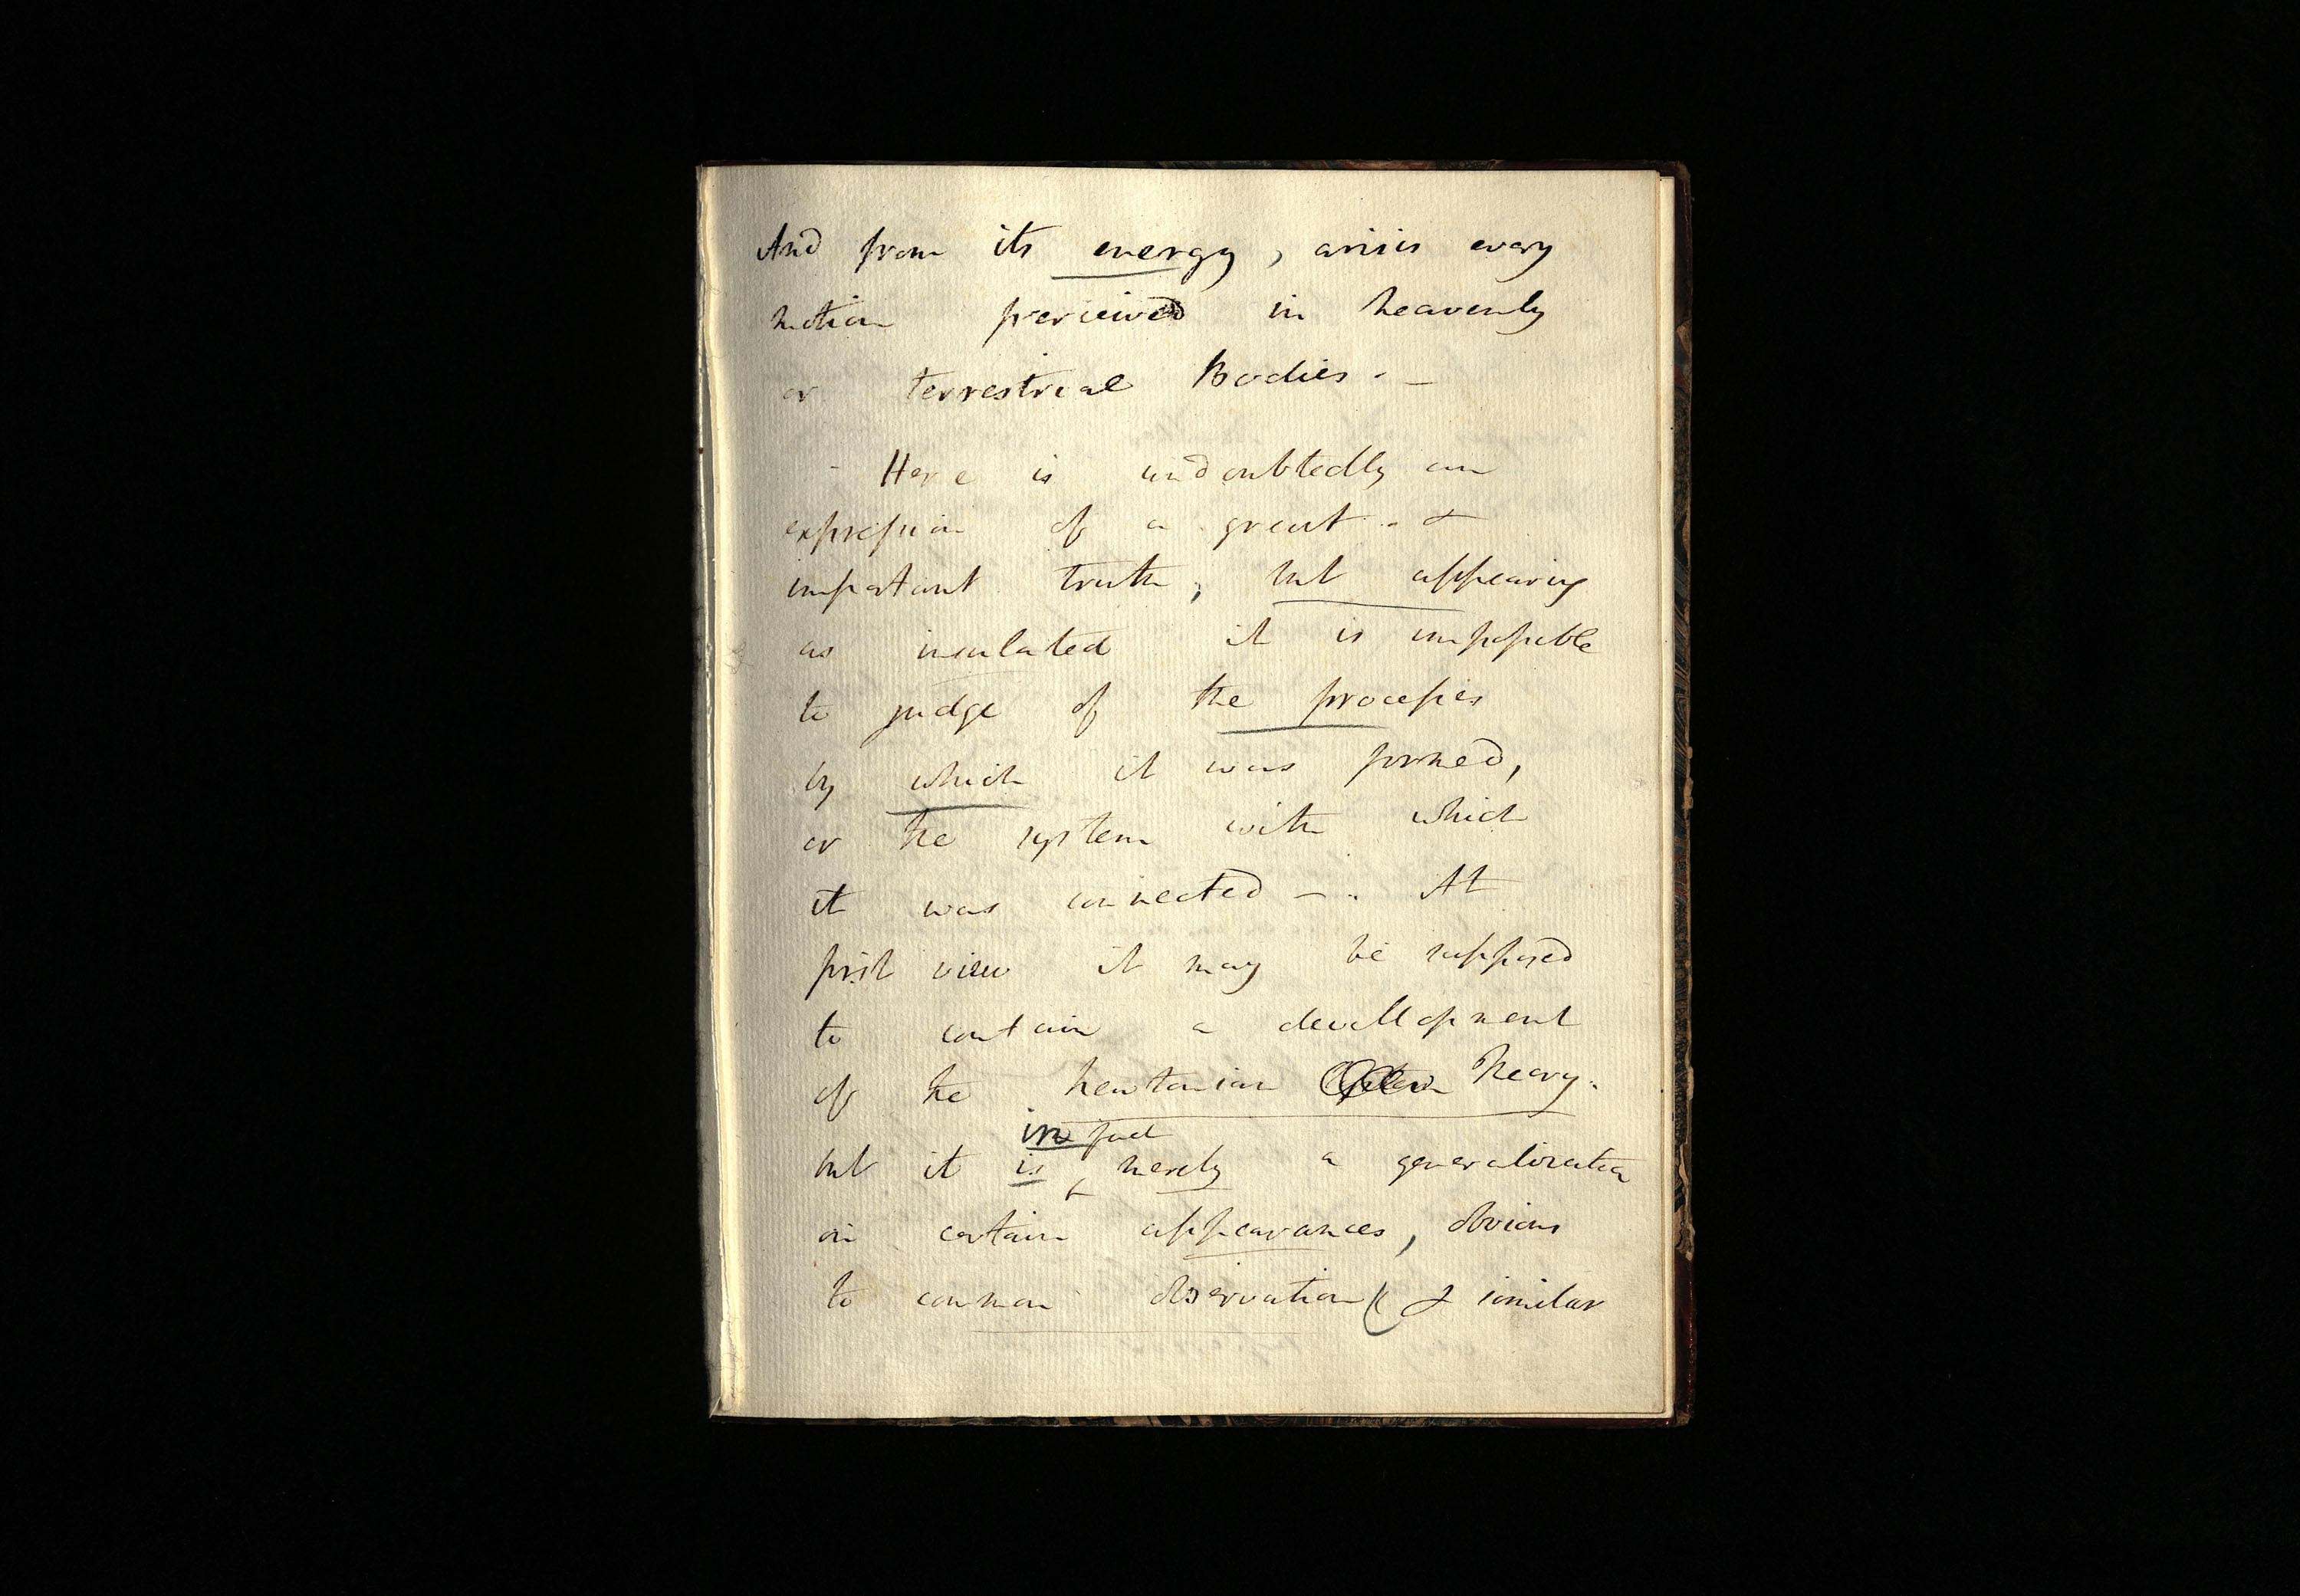 And from its energy, arises every
motion percieived in heavenly
or terrestrial Bodies. —
Here is undoubtedly an
expression of a great &
important truth; but appearing
as insulated it is impossible
to judge of the processes
by which it was formed,
or the system with which
it was connected —. At
first view it may be supposed
to contain a devellopment
of the Newtonian Theory.
in fact
but it is merely a generalization
on certain appearances, obvious
to common observation (& similar